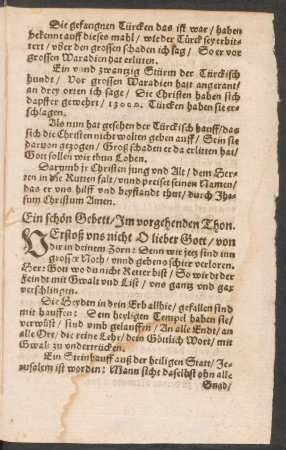 Die gefangnen Türcken das ist war / haben
bekennt auff dieses mahl / wie der Türck sey erbit-
tert / vber den grossen schaden ich sag / So er vor
grossen Waradien hat erlitten.
Ein vnnd zwantzig Stürm der Türckisch
hundt / Vor grossen Waradien hatt angerant /
an drey orten ich sage / Die Christen haben sich
dapffer gewehrt / 13000. Türcken haben sie er-
schlagen.
Als nun hat gesehen der Türckisch hauff / das
sich die Christen nicht wolten geben auff / Sein sie
daruon gezogen / Groß schaden er da erlitten hat /
Gott sollen wir thun Loben.
Darumb jr Christen jung vnd Alt / dem Her-
ren in die Rutten falt / vnnd preiset seinen Namen /
das er vns hilff vnd beystandt thut / durch Jhe-
sum Christum Amen.
Ein schön Gebett / Im vorgehenden Thon.
VErstoß vns nicht O lieber Gott / von
dir in deinem Zorn: Denn wir jetz sind inn
grosser Noth / vnnd gehens schier verloren.
Herr Gott wo du nicht Retter bist / So wirdt der
Feindt mit Gwalt vnd List / vns gantz vnd gar
verschlingen.
Die Heyden in dein Erb allhie / gefallen sind
mit hauffen: Dein heyligen Tempel haben sie /
verwüst / sind vmb gelauffen / An alle Endt / an
alle Ort / die reine Lehr / dein Göttlich Wort / mit
Gwalt zu vndertrücken.
Ein Steinhauff auß der heiligen Statt / Je-
rusalem ist worden: Mann sicht daselbst ohn alle
Gnad /